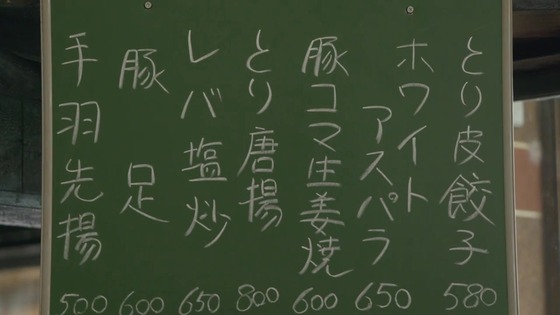 とり皮餃子 580
ホワイト
アスパラ 650
豚コマ生姜焼 600
とり唐揚 800
レバ塩炒 650
豚足 600
手羽先揚 500